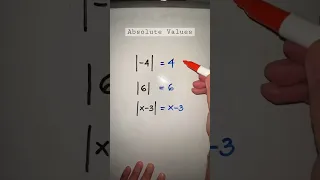 Absolute Values
|-4| = 4
|6| = 6
|x-3| = x-3